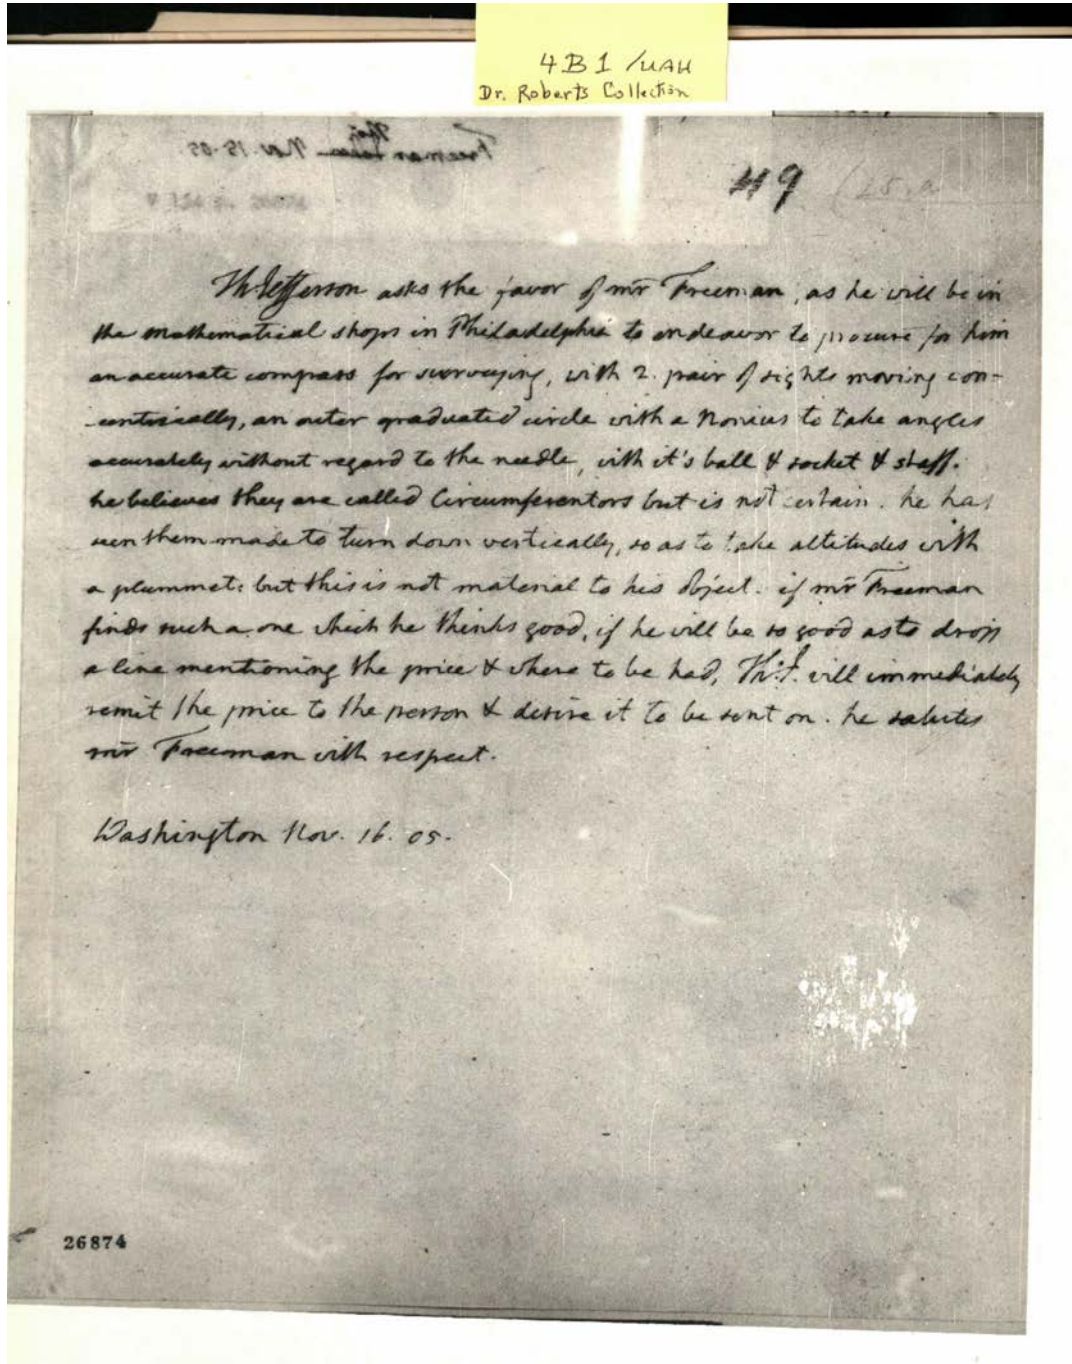 4B1/UAH
Dr. Roberts Collection
Freeman Thos. Nov. 15. 05.
49 (25.a
Th Jefferson asks the favor of mr Freeman, as he will be in
the mathematical shops in Philadelphia to endeavor to procure for him
an accurate compass for surveying, with 2. pair of sights moving con-
-centrically, an outer graduated circle with a Nonius to take angles
accurately without regard to the needle, with it's ball & socket & staff.
he believes they are called Circumferentors but is not certain. he has
seen them made to turn down vertically, so as to take altitudes with
a plummet: but this is not material to his object. if mr Freeman
finds such a one which he thinks good, if he will be so good as to drop
a line mentioning the price & where to be had, Th:J. will immediately
remit the price to the person & desire it to be sent on. he salutes
mr Freeman with respect.
Washington Nov. 16. 05.
26874